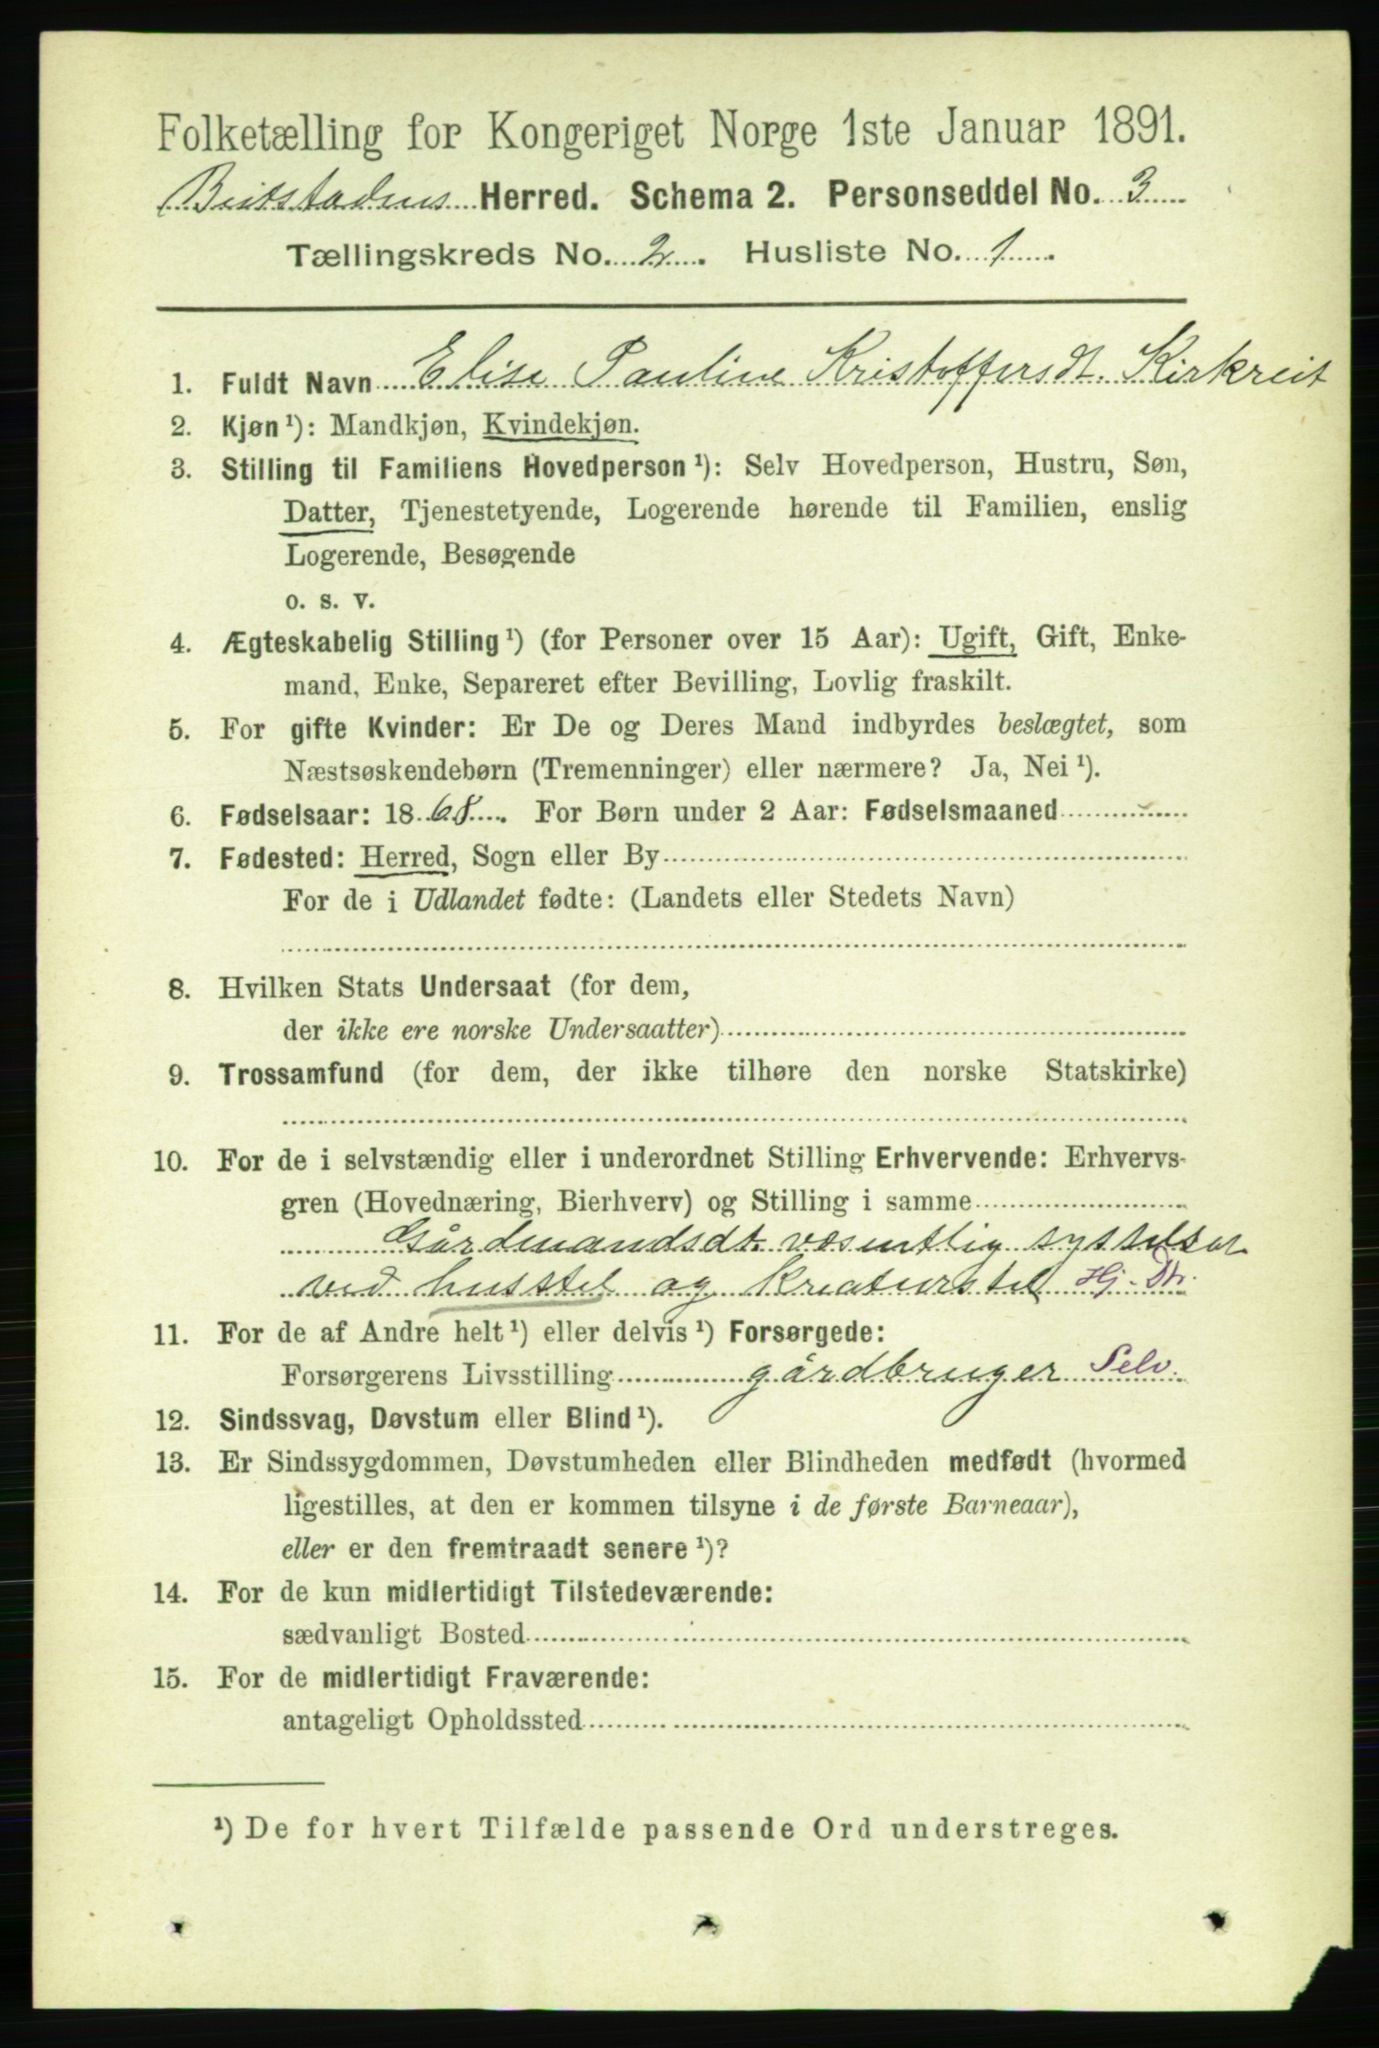 Folketælling for Kongeriget Norge 1ste Januar 1891.
Beitstadens Herred. Schema 2. Personseddel No. 3
Tællingskreds No. 2. Husliste No. 1
1. Fuldt Navn Elise Pauline Kristoffersdt. Kirkreit
2. Kjøn¹): Mandkjøn, Kvindekjøn.
3. Stilling til Familiens Hovedperson¹): Selv Hovedperson, Hustru, Søn,
Datter, Tjenestetyende, Logerende hørende til Familien, enslig
Logerende, Besøgende
o. s. v.
4. Ægteskabelig Stilling¹) (for Personer over 15 Aar): Ugift, Gift, Enke-
mand, Enke, Separeret efter Bevilling, Lovlig fraskilt.
5. For gifte Kvinder: Er De og Deres Mand indbyrdes beslægtet, som
Næstsøskendebørn (Tremenninger) eller nærmere? Ja, Nei¹).
6. Fødselsaar: 1868. For Børn under 2 Aar: Fødselsmaaned
7. Fødested: Herred, Sogn eller By
For de i Udlandet fødte: (Landets eller Stedets Navn)
8. Hvilken Stats Undersaat (for dem,
der ikke ere norske Undersaatter)
9. Trossamfund (for dem, der ikke tilhøre den norske Statskirke)
10. For de i selvstændig eller i underordnet Stilling Erhvervende: Erhvervs-
gren (Hovednæring, Bierhverv) og Stilling i samme
Gårdmandsdt. væsentlig sysselsat
ved husstel og kreaturstel Hj. Dtr.
11. For de af Andre helt¹) eller delvis¹) Forsørgede:
Forsørgerens Livsstilling gårdbruger Selv.
12. Sindssvag, Døvstum eller Blind¹).
13. Er Sindssygdommen, Døvstumheden eller Blindheden medfødt (hvormed
ligestilles, at den er kommen tilsyne i de første Barneaar),
eller er den fremtraadt senere¹)?
14. For de kun midlertidigt Tilstedeværende:
sædvanligt Bosted
15. For de midlertidigt Fraværende:
antageligt Opholdssted
¹) De for hvert Tilfælde passende Ord understreges.